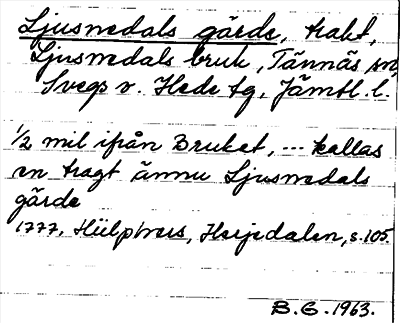 Ljusnedals gärde, trakt,
Ljusnedals bruk, Tännäs sn,
Svegs o. Hede tg, Jämtl. l.
1/2 mil ifrån Bruket, ... kallas
en tragt ännu Ljusnedals
gärde
1777, Hülphers, Herjedalen, s. 105.
B. G. 1963.